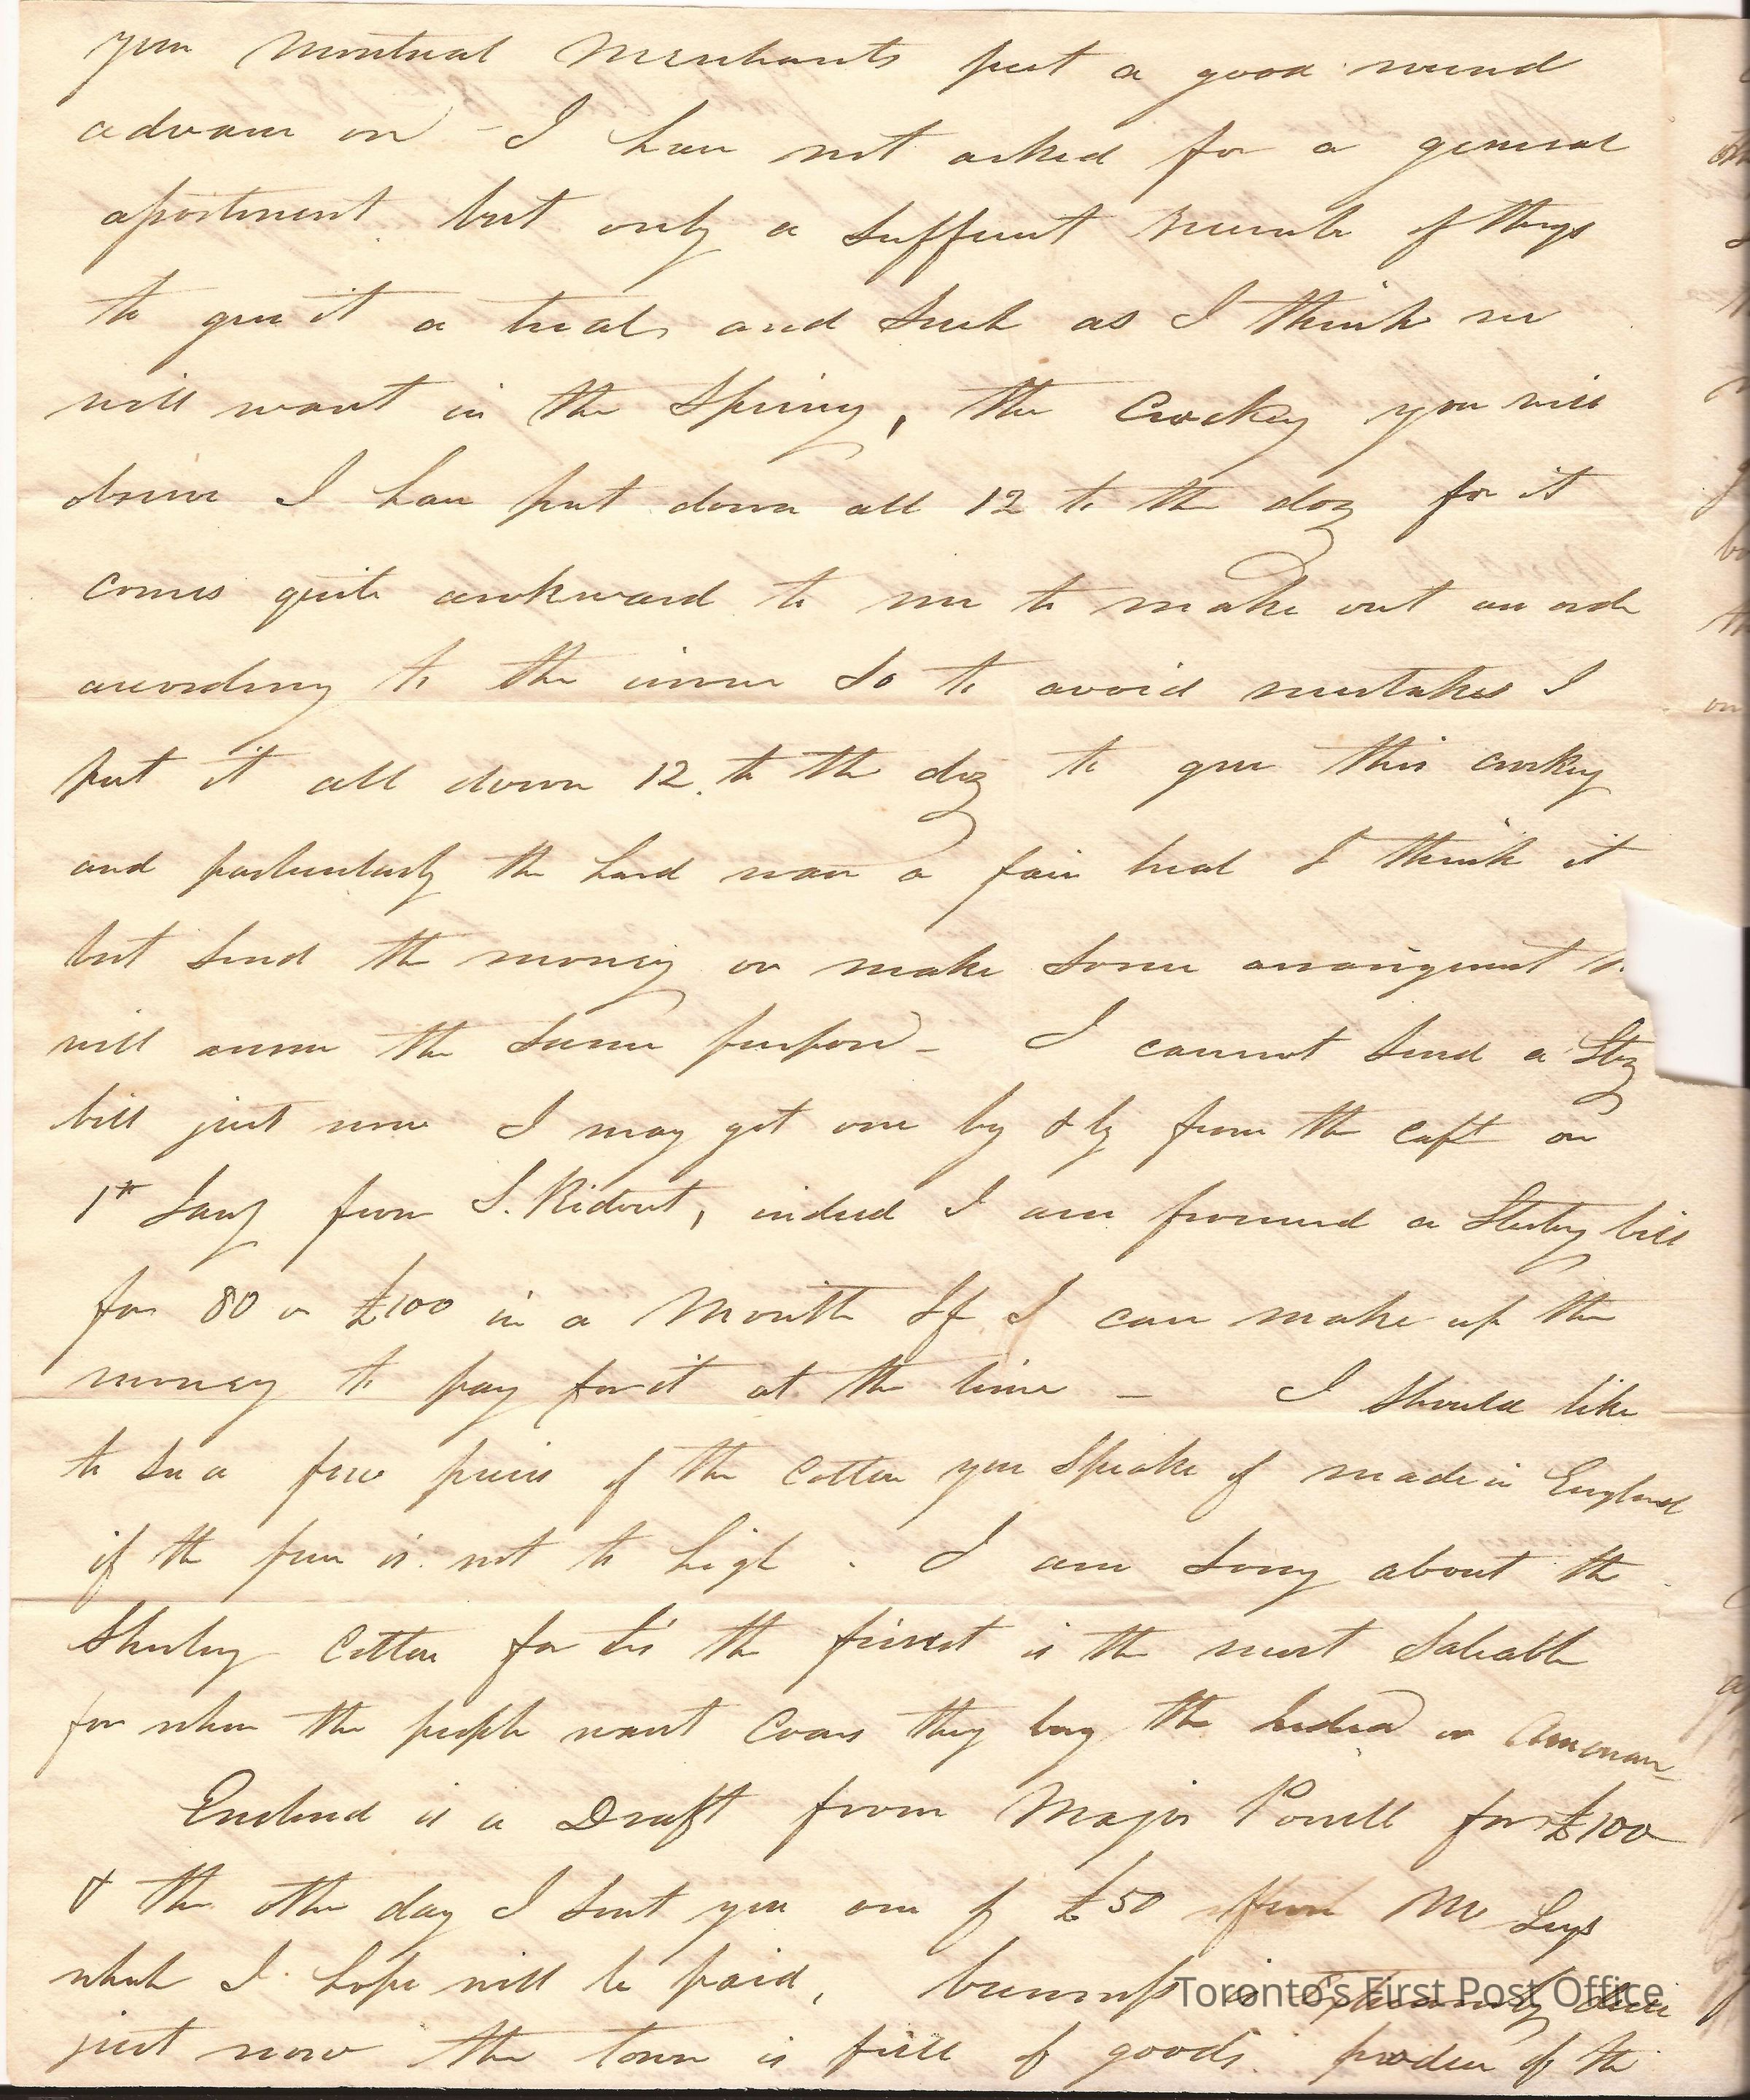 you Montreal Merchants put a good round
advance on - I have not asked for a general
assortment but only a sufficient number of things
to give it a trial, and such as I think we
will want in the Spring, the Crockery you will
observe I have put down all 12 to the doz for it
comes quite awkward to me to make out an order
according to the so to avoid mistakes I
put it all down 12. to the doz to give this crockery
and particularly the hard ware a fair trial I think it
but send the money or make some arrangement
will answer the same purpose - I cannot send a Stg
bill just now I may get one by & by from the capt on
1st Jany from S. Ridout, indeed I am promised a Sterling bill
for 80 or £100 in a Month If I can make up the
money to pay for it at the time - I should like
to see a few pieces of the cotton you speake of made in England
if the price is not to high . I am sorry about the
cotton for tis the finest is the most saleable
for when the people want coars they buy the India or American -
Enclosed is a Draft from Major Powell for £100
& the other day I sent you one of £50 from Mr Leys
which I hope will be paid, business is dull
just now the town is full of goods. produce of the
Toronto's First Post Office